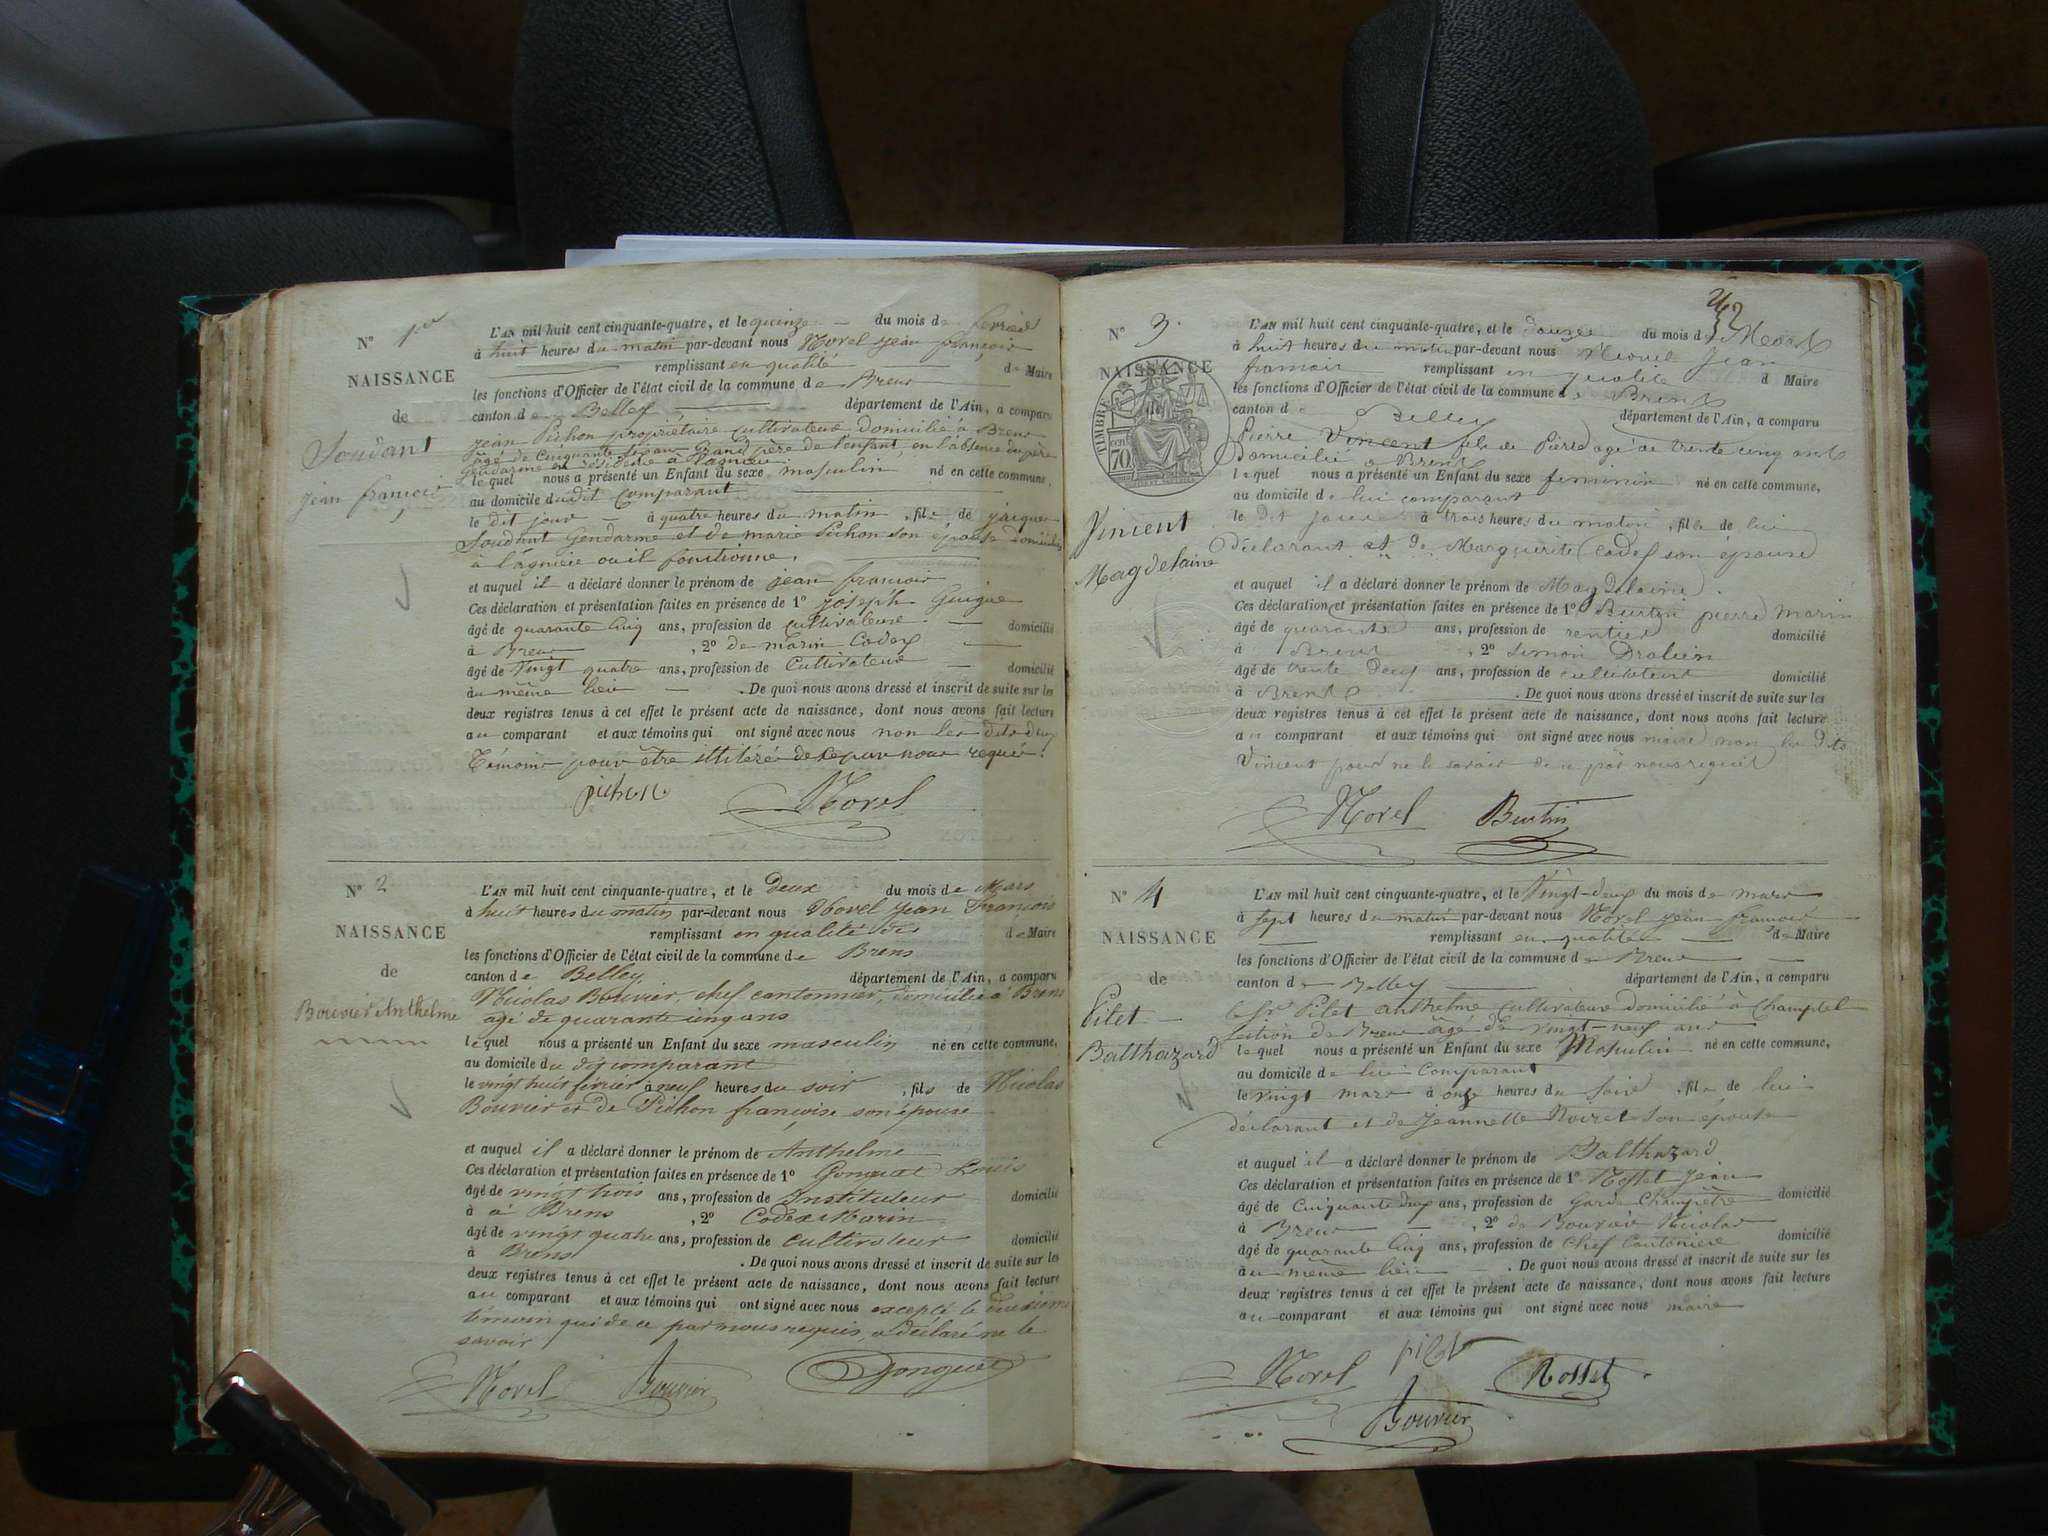 N° 1er
NAISSANCE
de
Soudant
jean françois
L'AN mil huit cent cinquante-quatre, et le quinze du mois de fevrier
à huit heures du matin par-devant nous Morel jean françois
remplissant en qualité de Maire
les fonctions d'Officier de l'état civil de la commune de Brens
canton de Belley département de l'Ain, a comparu
jean Pichon propriétaire cultivateur domicilié à Brens
âgé de cinquante six ans Grand père de l'enfant, en l'absence du père
Gendarme en résidence à Lagnieu
lequel nous a présenté un Enfant du sexe masculin né en cette commune,
au domicile dudit Comparant
le dit jour à quatre heures du matin, fils de jacques
Soudant Gendarme et de marie Pichon son épouse domiciliés
à Lagnieu ou il fonctionne.
et auquel il a déclaré donner le prénom de jean françois
Ces déclaration et présentation faites en présence de 1° joseph Guigue
âgé de quarante cinq ans, profession de cultivateur domicilié
à Brens, 2° de marin Codex
âgé de vingt quatre ans, profession de Cultivateur domicilié
au même lieu. De quoi nous avons dressé et inscrit de suite sur les
deux registres tenus à cet effet le présent acte de naissance, dont nous avons fait lecture
au comparant et aux témoins qui ont signé avec nous non les dits deux
Témoins pour être illitérés de ce par nous requis.
pichon Morel
N° 2
NAISSANCE
de
Bouvier Anthelme
L'AN mil huit cent cinquante-quatre, et le Deux du mois de Mars
à huit heures du matin par-devant nous Morel Jean François
remplissant en qualité de Maire
les fonctions d'Officier de l'état civil de la commune de Brens
canton de Belley département de l'Ain, a comparu
Nicolas Bouvier, chef cantonnier, domicilié à Brens
agé de quarante cinq ans
lequel nous a présenté un Enfant du sexe masculin né en cette commune,
au domicile du dit comparant
le vingt huit février à neuf heures du soir, fils de Nicolas
Bouvier et de Pichon françoise son épouse
et auquel il a déclaré donner le prénom de Anthelme
Ces déclaration et présentation faites en présence de 1° Gonguet Louis
âgé de vingt trois ans, profession de Instituteur domicilié
à à Brens, 2° Codex Marin
âgé de vingt quatre ans, profession de cultivateur domicilié
à Brens. De quoi nous avons dressé et inscrit de suite sur les
deux registres tenus à cet effet le présent acte de naissance, dont nous avons fait lecture
au comparant et aux témoins qui ont signé avec nous excepté le deuxième
témoin qui de ce par nous requis, a déclaré ne le
savoir
Morel Bouvier Gonguet
N° 3.
NAISSANCE
de
TIMBRE
70
Vincent
Magdelaine
L'AN mil huit cent cinquante-quatre, et le douze du mois de Mars
à huit heures du matin par-devant nous Morel Jean
francois remplissant en qualité d Maire
les fonctions d'Officier de l'état civil de la commune de Brens
canton de Belley département de l'Ain, a comparu
Pierre Vincent fils de Pierre agé de trente cinq ans
Domicilié à Brens
lequel nous a présenté un Enfant du sexe feminin né en cette commune,
au domicile de lui comparant
le dit jour à trois heures du matin, fille de lui
Déclarant et de Marguerite Codex son épouse
et auquel il a déclaré donner le prénom de Magdelaine.
Ces déclaration et présentation faites en présence de 1° Burtin pierre marin
âgé de quarante ans, profession de rentier domicilié
à Brens, 2° Simon
âgé de trente deux ans, profession de cultivateur domicilié
à Brens. De quoi nous avons dressé et inscrit de suite sur les
deux registres tenus à cet effet le présent acte de naissance, dont nous avons fait lecture
au comparant et aux témoins qui ont signé avec nous maire non le dit
Vincent pour ne le savoir de ce par nous requis
Morel Burtin
N° 4
NAISSANCE
de
Pilet
Balthazard
L'AN mil huit cent cinquante-quatre, et le Vingt-deux du mois de mars
à sept heures du matin par-devant nous Morel jean françois
remplissant en qualité de Maire
les fonctions d'Officier de l'état civil de la commune de Brens
canton de Belley département de l'Ain, a comparu
le Sr Pilet anthelme cultivateur domicilié à Champtel
section de Brens âgé de vingt-neuf ans
lequel nous a présenté un Enfant du sexe Masculin né en cette commune,
au domicile de lui Comparant
le vingt mars à onze heures du Soir, fils de lui
déclarant et de jeannette Noiret Son épouse
et auquel il a déclaré donner le prénom de Balthazard
Ces déclaration et présentation faites en présence de 1° Rosset jean
âgé de Cinquante deux ans, profession de Garde Champêtre domicilié
à Brens, 2° de Bouvier Nicolas
âgé de quarante cinq ans, profession de Chef Cantonier domicilié
au même lieu. De quoi nous avons dressé et inscrit de suite sur les
deux registres tenus à cet effet le présent acte de naissance, dont nous avons fait lecture
au comparant et aux témoins qui ont signé avec nous maire
Morel pilet Rosset
Bouvier